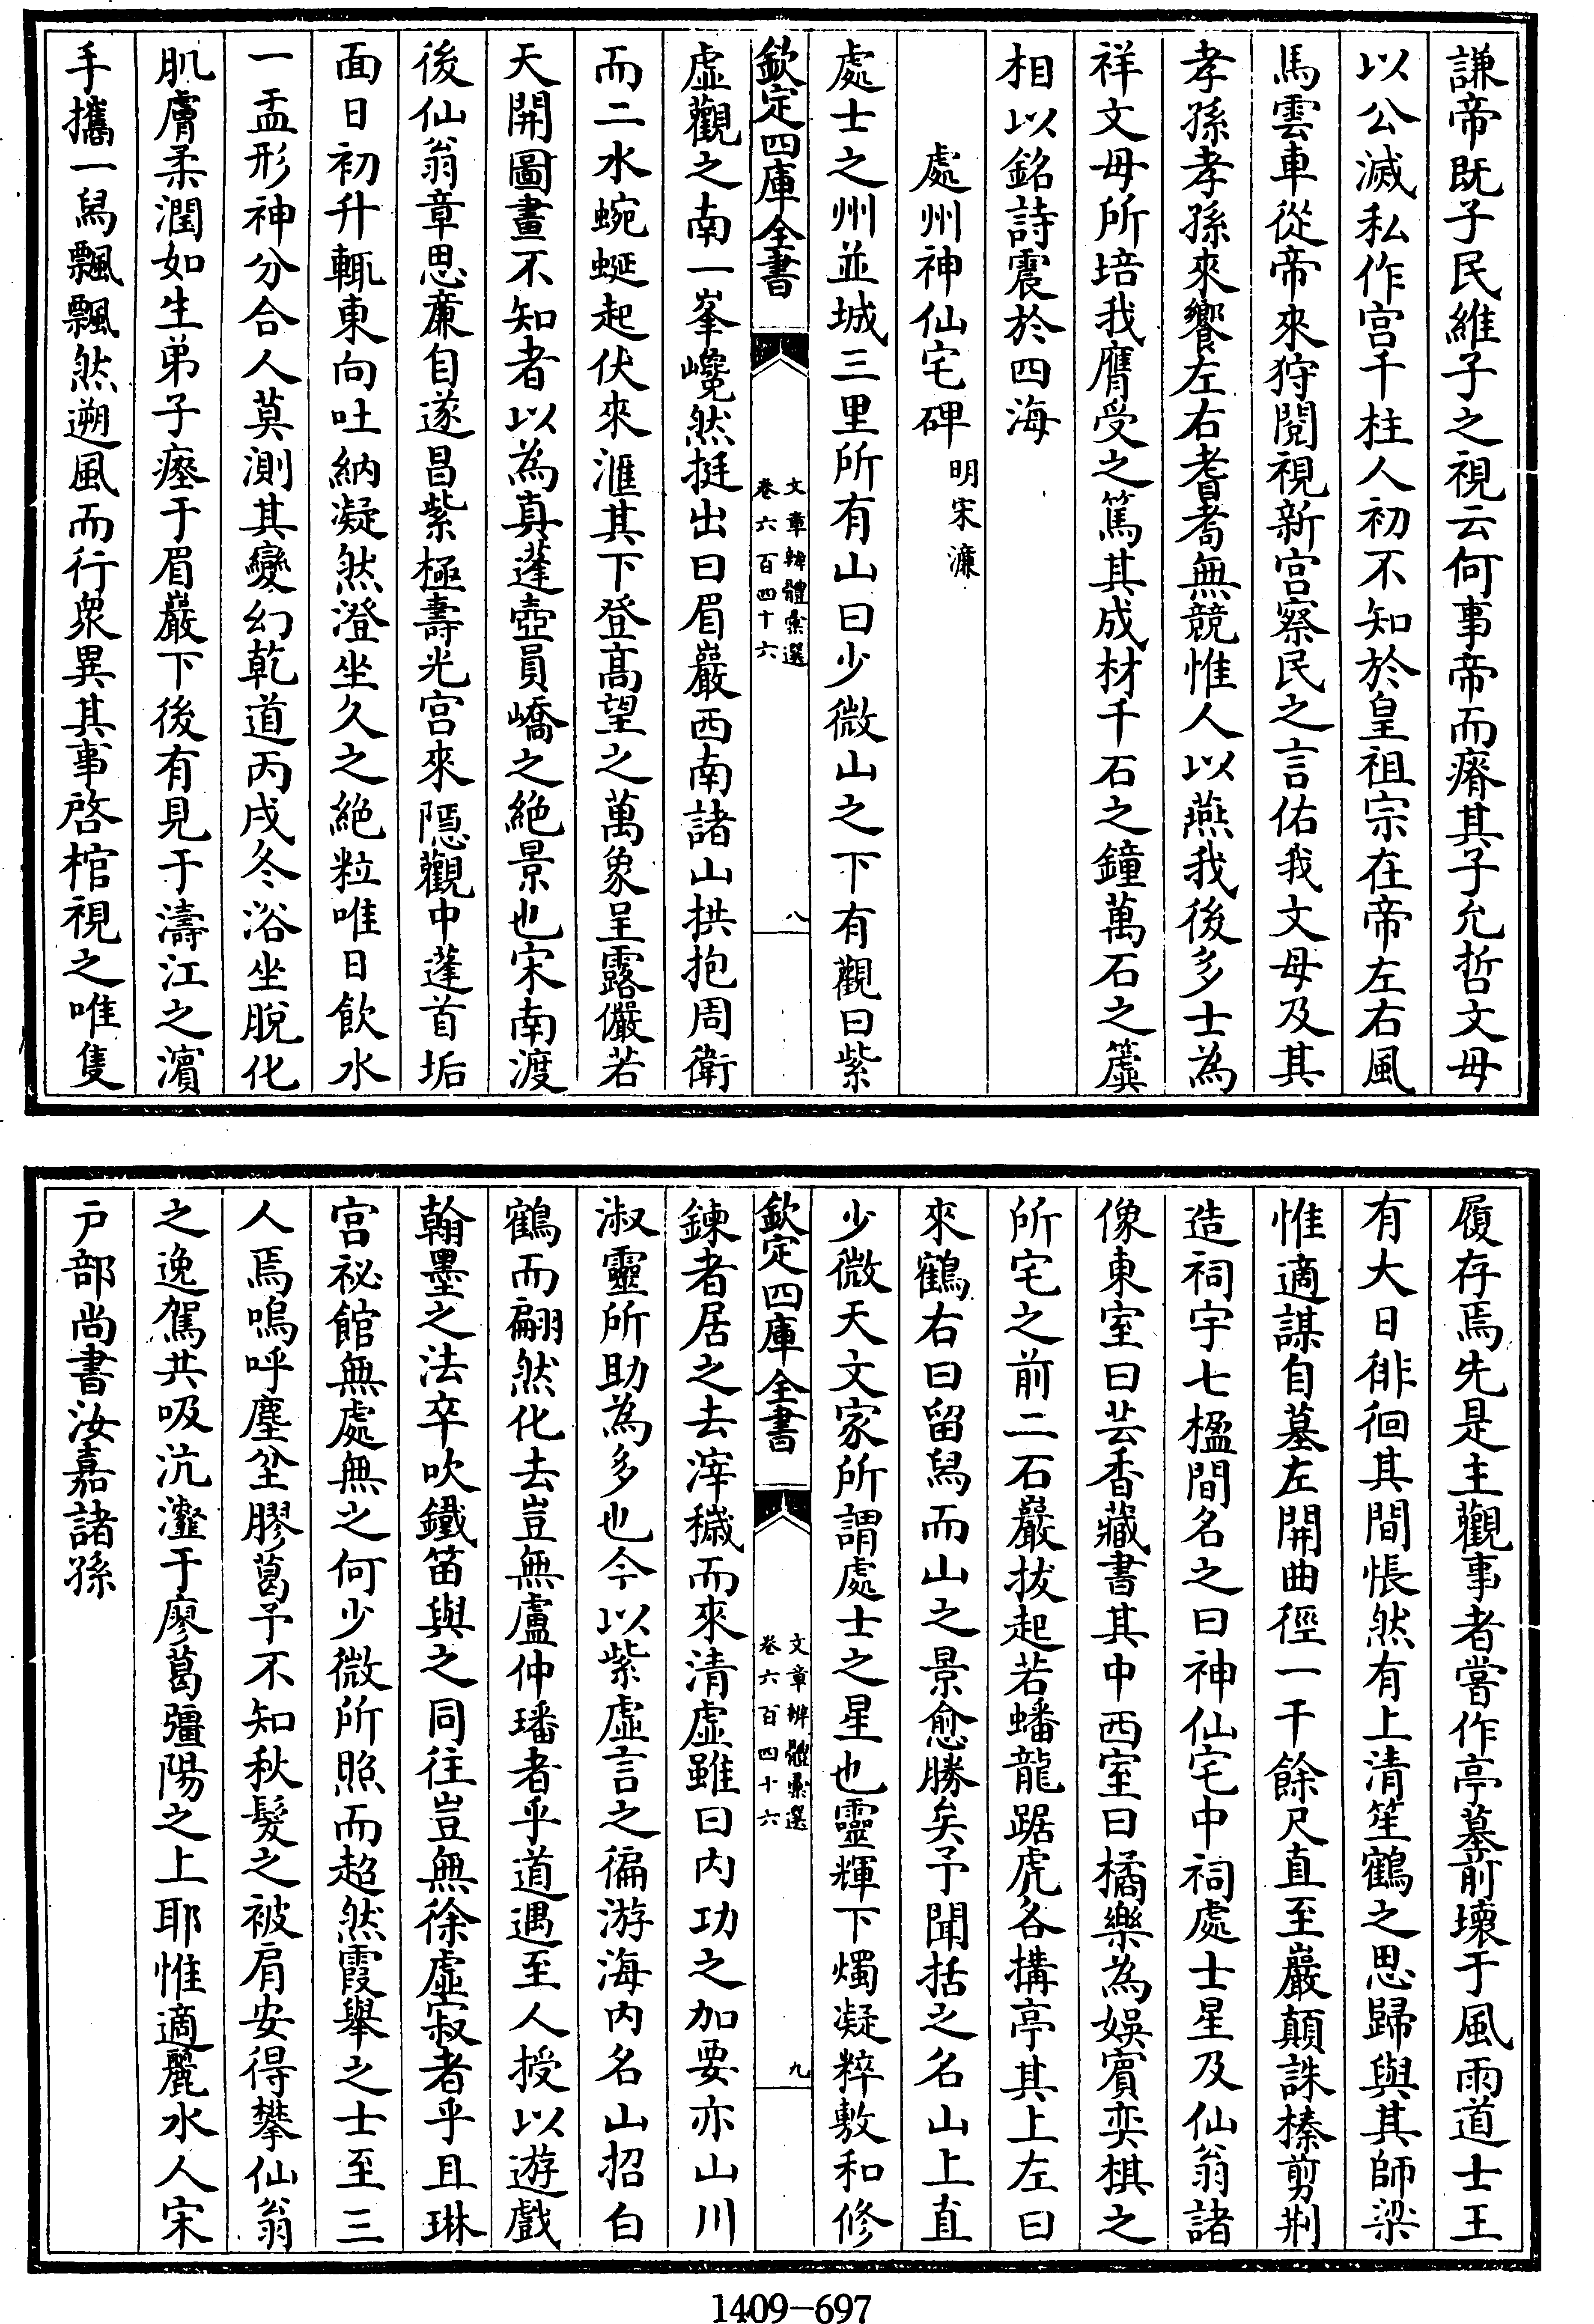 謙帝既子民維子之視云何事帝而瘠其子允哲文母
以公滅私作宫千柱人初不知於皇祖宗在帝左右風
馬雲車從帝來狩閱視新宫察民之言佑我文母及其
孝孫孝孫來饗左右耆耇無競惟人以燕我後多士為
祥文母所培我膺受之篤其成材千石之鐘萬石之簴
相以銘詩震於四海
處州神仙宅碑 明宋濂
處士之州並城三里所有山曰少微山之下有觀曰紫
欽定四庫全書 文章辨體彙選 卷六百四十六 八
虚觀之南一峯巉然挺出曰眉巖西南諸山拱抱周衛
而二水蜿蜒起伏來滙其下登髙望之萬象呈露儼若
天開圖畫不知者以為真蓬壺員嶠之絶景也宋南渡
後仙翁章思亷自遂昌紫極壽光宫來隱觀中蓬首垢
面日初升輒東向吐納凝然澄坐久之絶粒唯日飲水
一盂形神分合人莫測其變幻乾道丙戌冬浴坐脫化
肌膚柔潤如生弟子瘞于眉巖下後有見于濤江之濵
手攜一舄飄飄然遡風而行衆異其事啓棺視之唯隻
履存焉先是主觀事者嘗作亭墓前壊于風雨道士王
有大日徘徊其間悵然有上清笙鶴之思歸與其師梁
惟適謀自墓左開曲徑一千餘尺直至巖顛誅榛剪荆
造祠宇七楹間名之曰神仙宅中祠處士星及仙翁諸
像東室曰芸香藏書其中西室曰橘樂為娛賔奕棋之
所宅之前二石巖拔起若蟠龍踞虎各搆亭其上左曰
來鶴右曰留舄而山之景愈勝矣予聞括之名山上直
少微天文家所謂處士之星也靈輝下燭凝粹敷和修
欽定四庫全書 文章辨體彙選 卷六百四十六 九
鍊者居之去滓穢而來清虚雖曰内功之加要亦山川
淑靈所助為多也今以紫虚言之徧游海内名山招白
鶴而翩然化去豈無盧仲璠者乎道遇至人授以遊戲
翰墨之法卒吹鐵笛與之同往豈無徐虚寂者乎且琳
宫祕館無處無之何少微所照而超然霞舉之士至三
人焉嗚呼塵坌膠葛予不知秋髮之被肩安得攀仙翁
之逸駕共吸沆瀣于廖葛彊陽之上耶惟適麗水人宋
戸部尚書汝嘉諸孫
1409-697